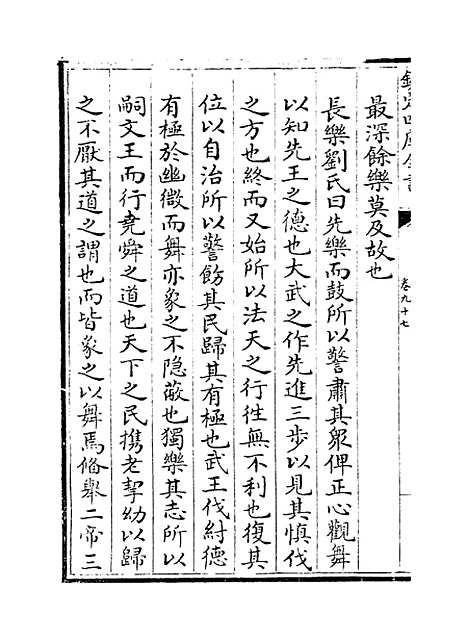 欽定四庫全書
卷九十七
最深餘樂莫及故也
長樂劉氏曰先樂而鼓所以警肅其衆俾正心觀舞
以知先王之德也大武之作先進三步以見其慎伐
之方也終而又始所以法天之行徃無不利也復其
位以自治所以警飭其民歸其有極也武王伐紂德
有極於幽微而舞亦象之不隐蔽也獨樂其志所以
嗣文王而行堯舜之道也天下之民携老挈幼以歸
之不厭其道之謂也而皆象之以舞焉備舉二帝三